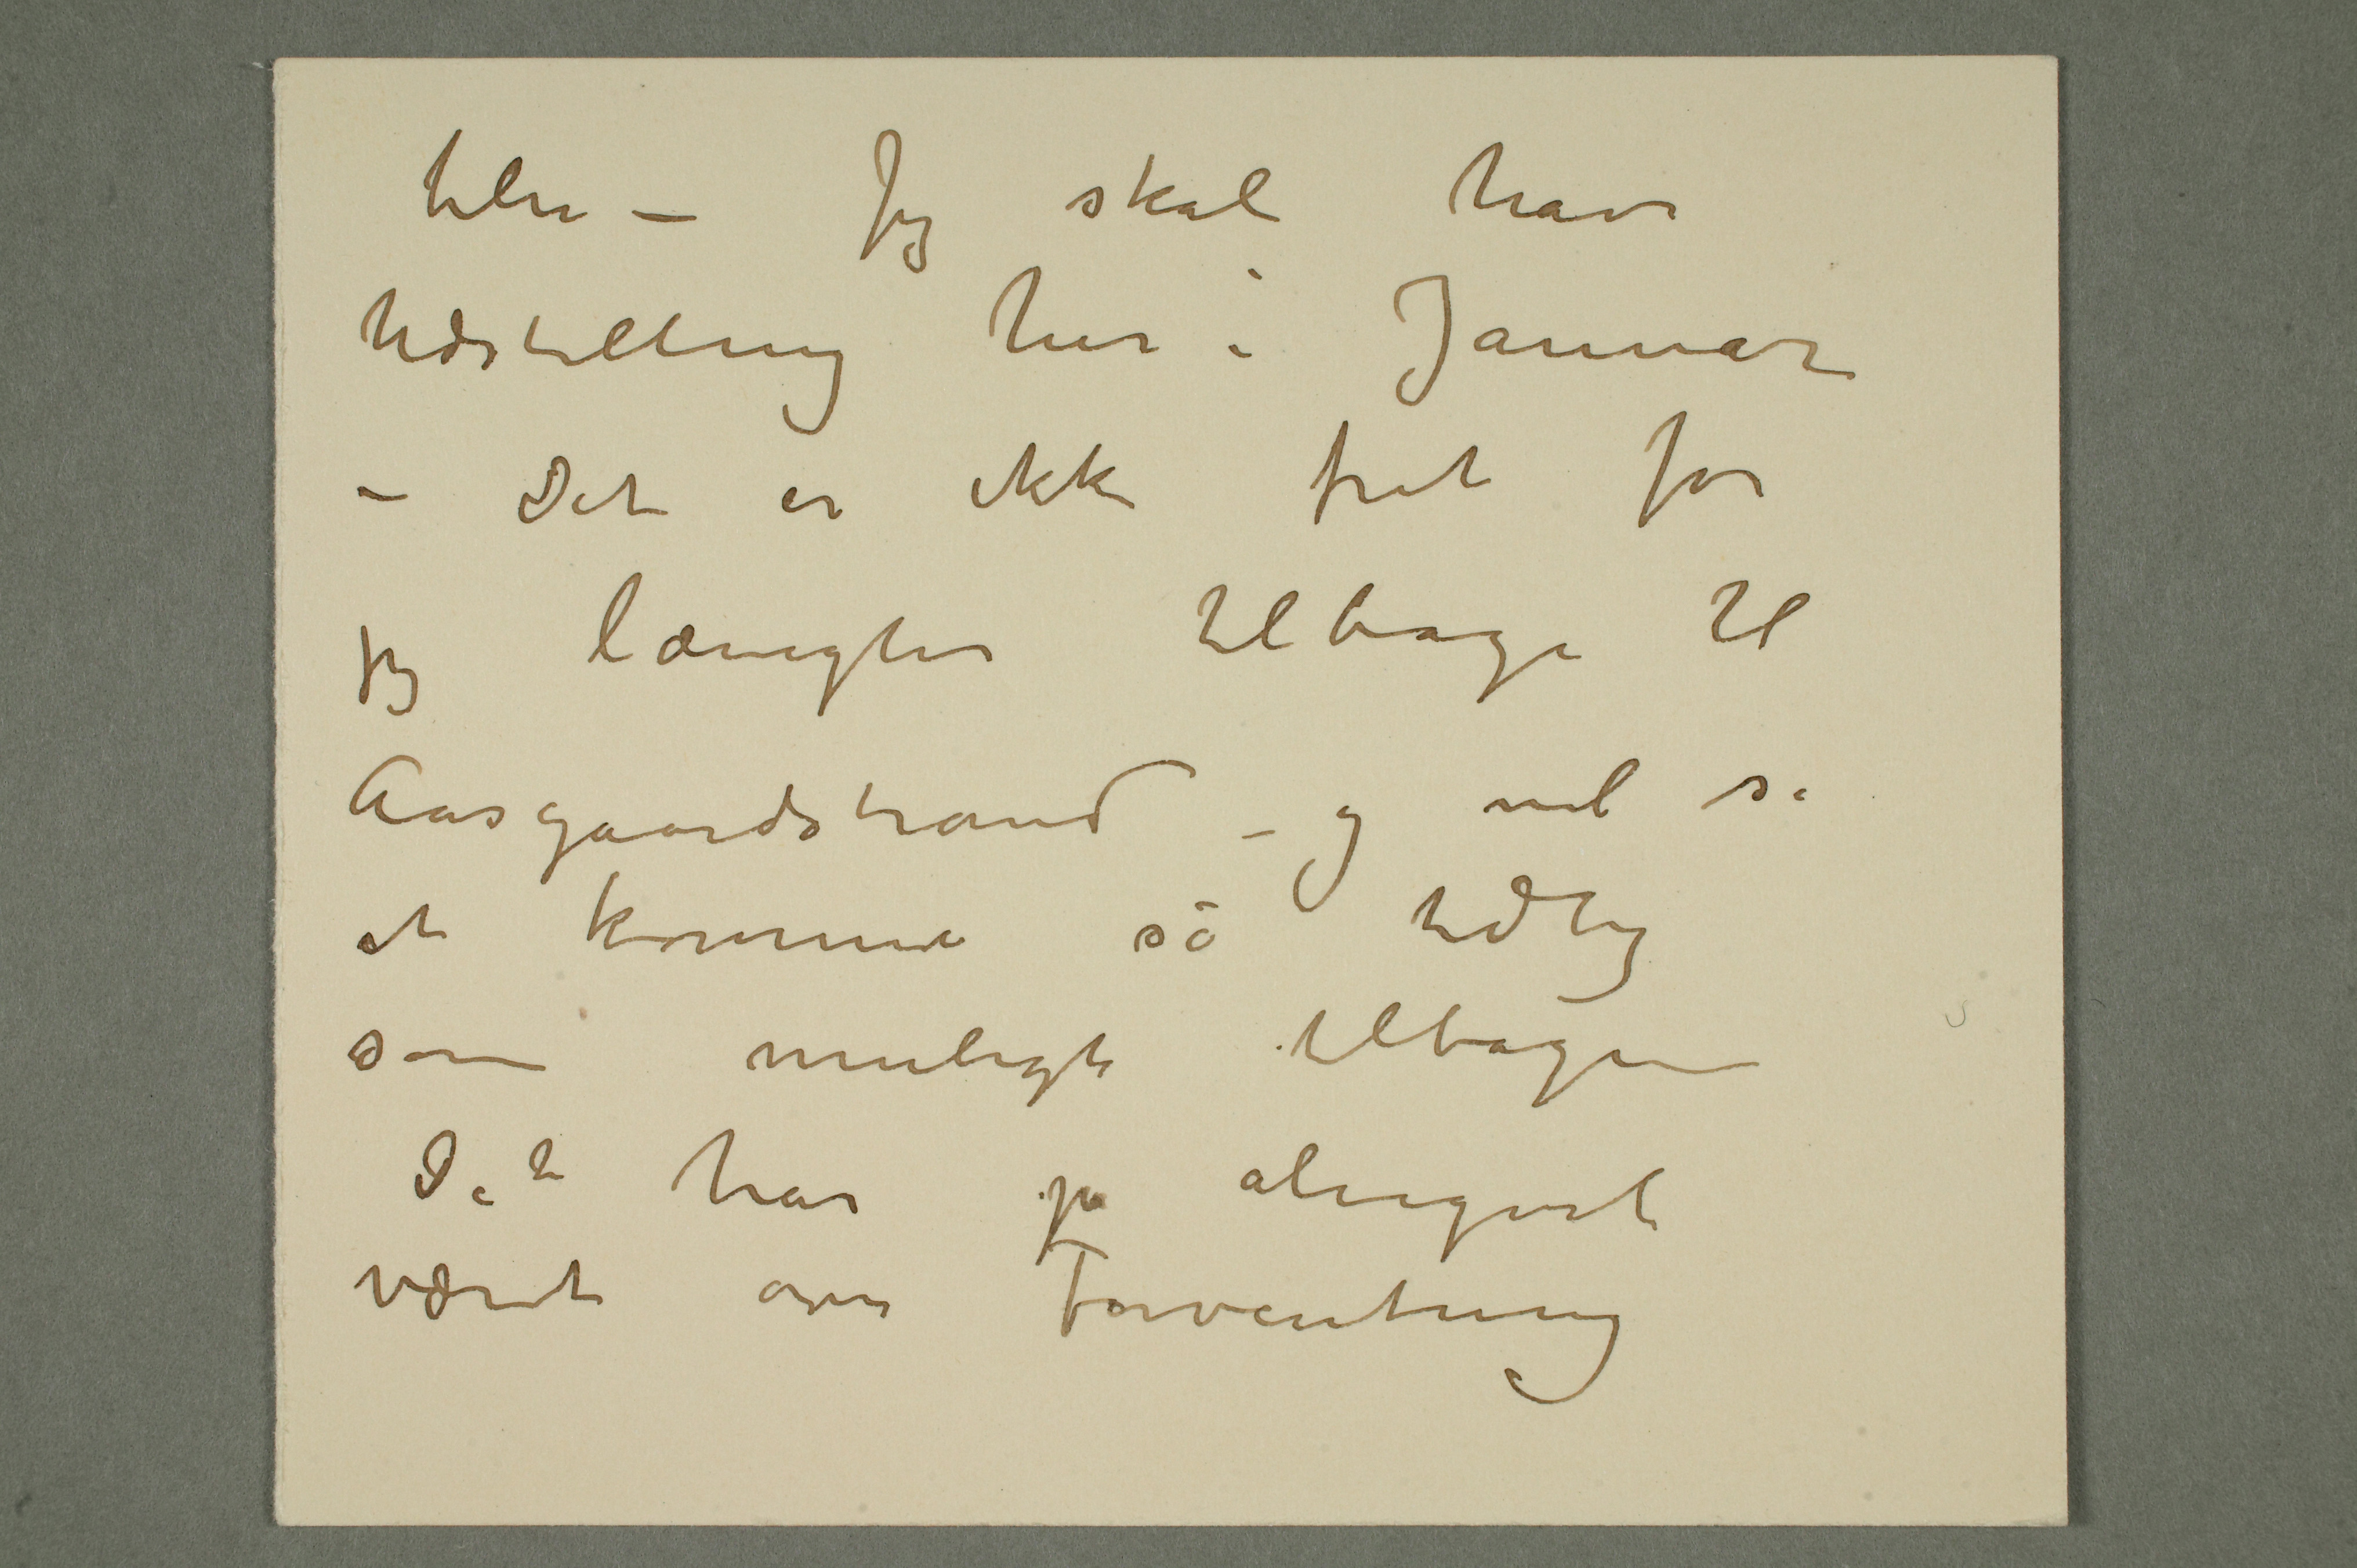 – Jeg skal have
Udstilling her i Januar
– Det er ikke frit for
jeg længter tilbage til
Aasgaardstrand – og vil se
at komme så tidlig
som muligt tilbage –
Det har jo alligevel
været over Forventning